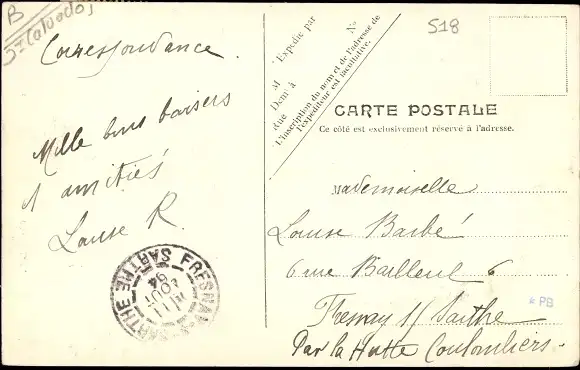 B
Calvados
Correspondance
518
Expédié par
M
Demt à
Rue
No
L'inscription du nom et de l'adresse de
l'expéditeur est facultative.
CARTE POSTALE
Ce côté est exclusivement réservé à l'adresse.
Mille bons baisers
et amitiés
Louise R.
Mademoiselle
Louise Barbé
6 rue Bailleul 6
Fresnay s/ Sarthe
Par la Hutte Coulombiers
FRESNAY
SARTHE
11
AOUT
04
* PB